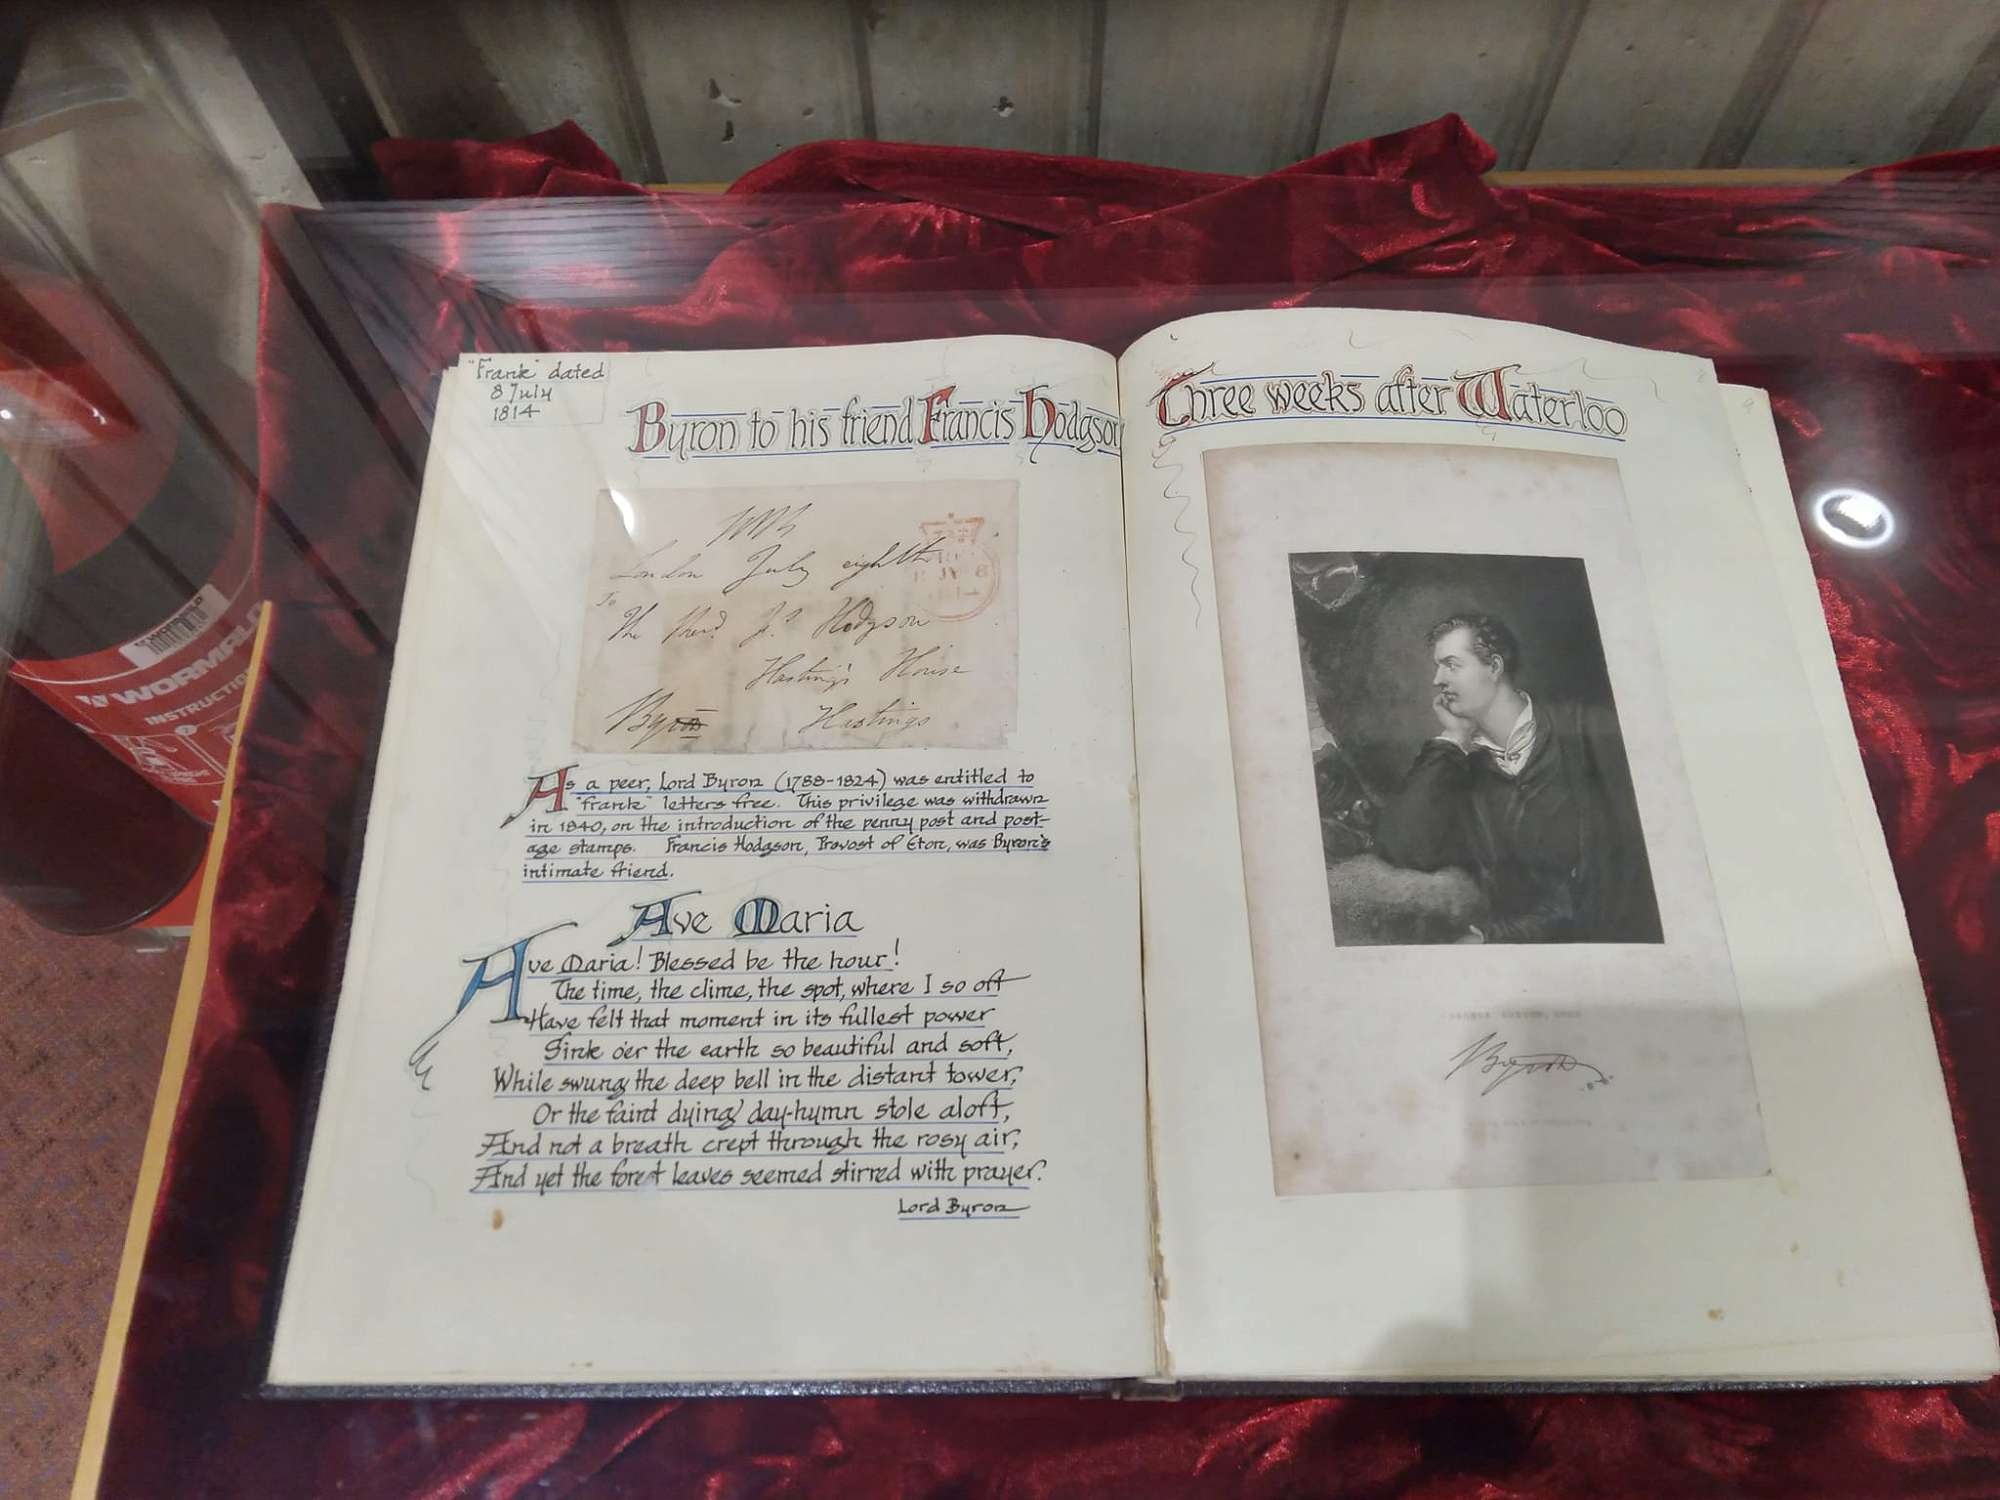 "Frank" dated
8 July
1814
Byron to his friend Francis Hodgson
London July eighth
To
The Revd. Fs. Hodgson
Hastings House
Byron Hastings
As a peer, Lord Byron (1788-1824) was entitled to
"frank" letters free. This privilege was withdrawn
in 1840, on the introduction of the penny post and post-
age stamps. Francis Hodgson, Provost of Eton, was Byron's
intimate friend.
Ave Maria
Ave Maria! Blessed be the hour!
The time, the clime, the spot, where I so oft
Have felt that moment in its fullest power
Sink o'er the earth so beautiful and soft,
While swung the deep bell in the distant tower,
Or the faint dying day-hymn stole aloft,
And not a breath crept through the rosy air,
And yet the forest leaves seemed stirred with prayer.
Lord Byron
Three weeks after Waterloo
Byron
WORMALD
INSTRUCTIONS